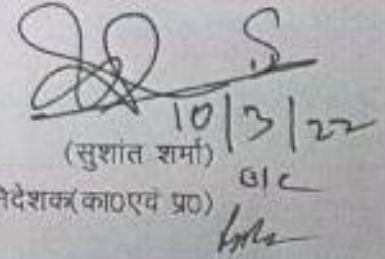 10/3/22
(सुशांत शर्मा)
निदेशक(का0एवं प्र0)